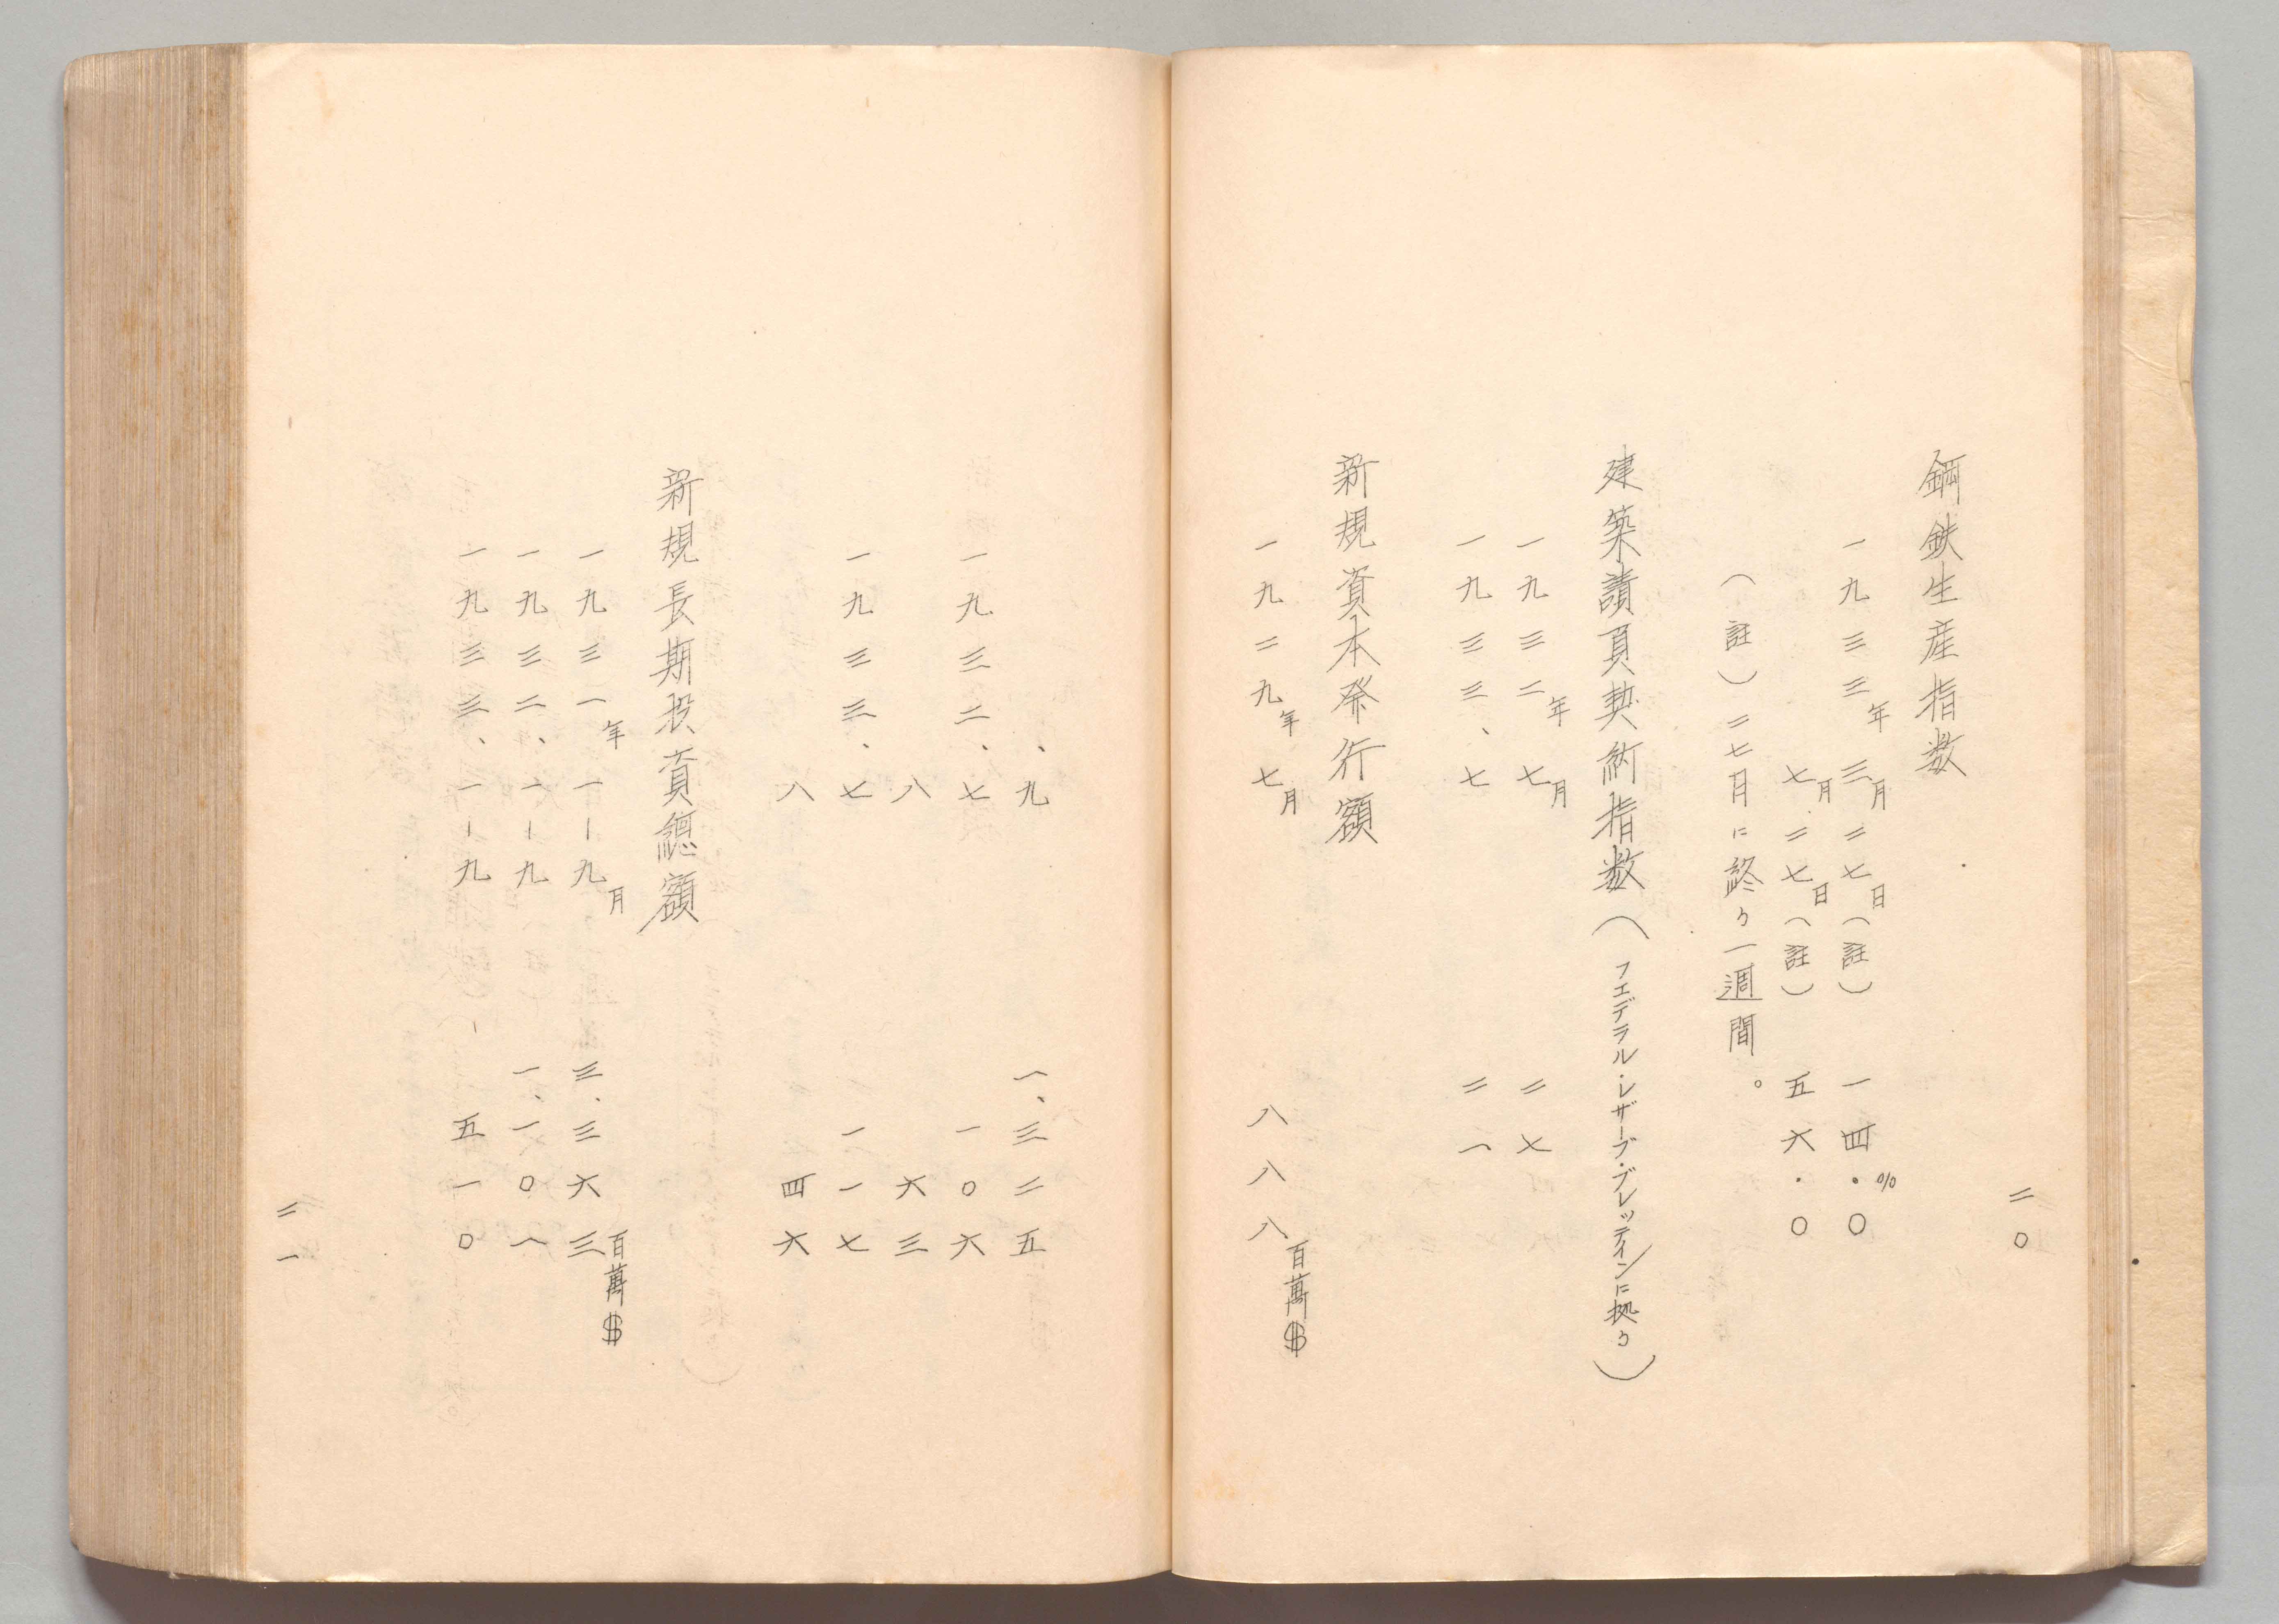 二〇
鋼鉄生産指数
一九三三年三月二七日(註) 一四・〇%
七月二七日(註) 五六・〇
(註)二七日に終る一週間。
建築請負契約指数(フェデラル・レザーブ・ブレッティンに拠る)
一九三二年七月 二七
一九三三、七 二一
新規資本発行額
一九二九年七月 八八八百萬$
、九 一、三二五
一九三二、七 一〇六
八 六三
一九三三、七 一一七
八 四六
新規長期投資總額
一九三一年一-九月 三、三六三百萬$
一九三二、一-九 一、一〇一
一九三三、一-九 五一〇
二一